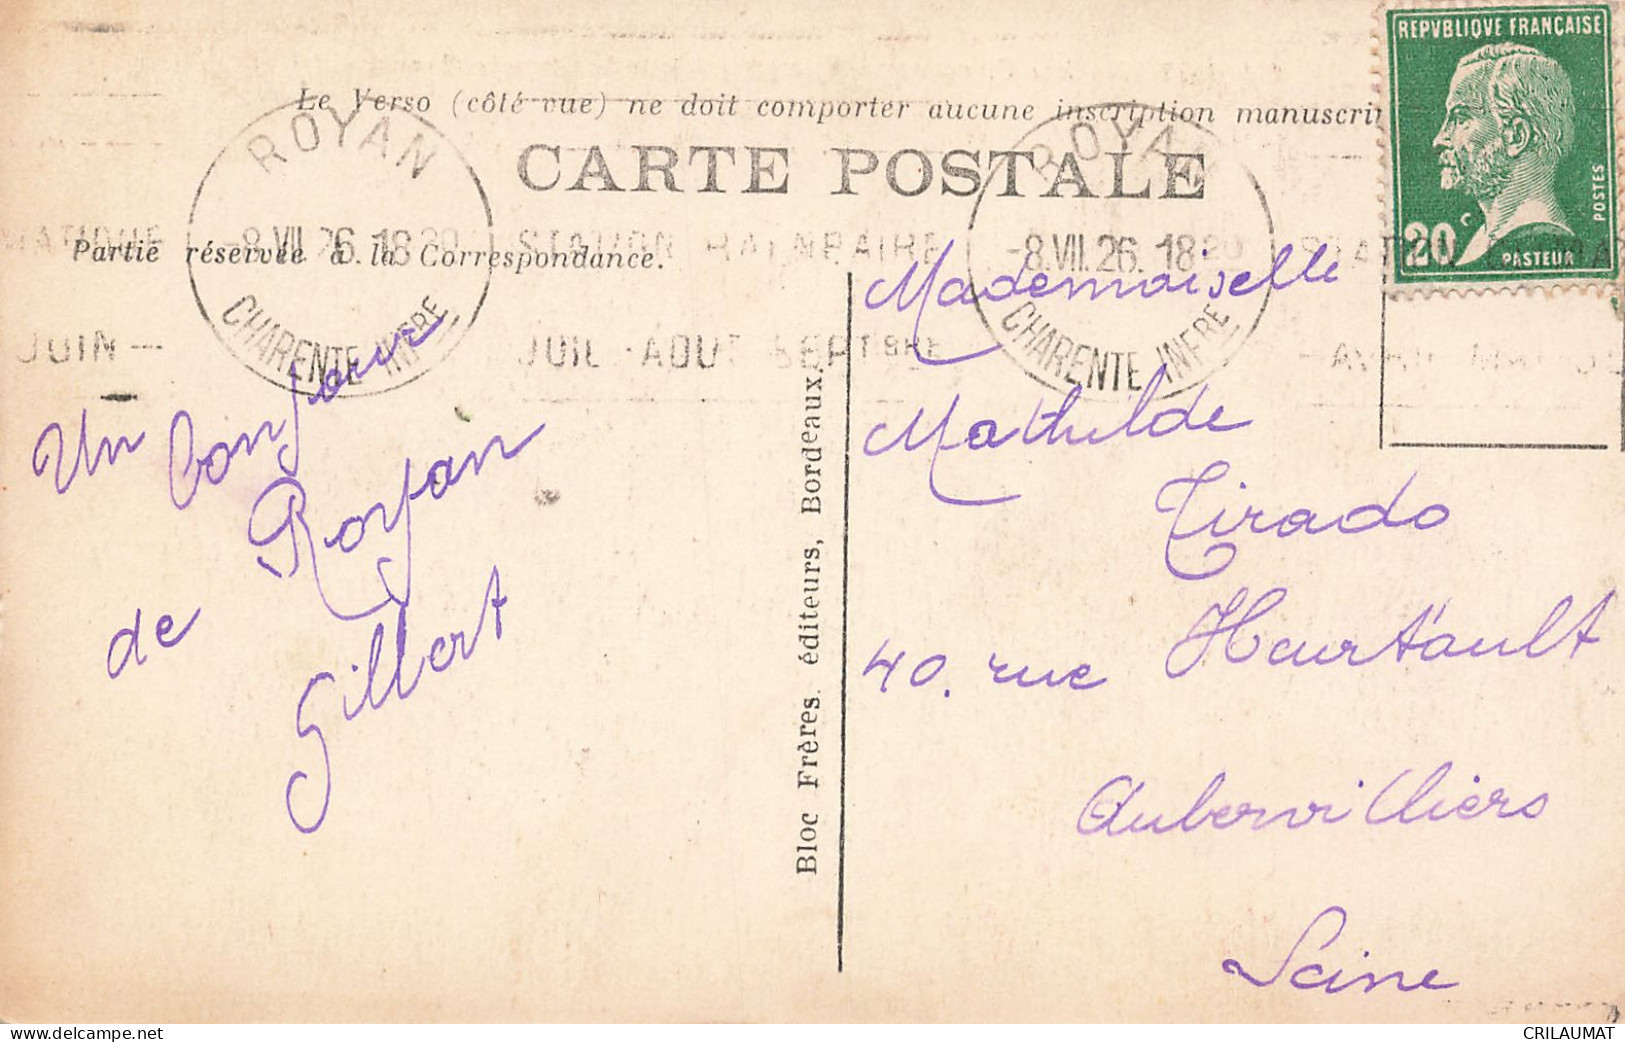 REPVBLIQVE FRANÇAISE
POSTES
20 c
PASTEUR
Le Verso (côté vue) ne doit comporter aucune inscription manuscri
CARTE POSTALE
Partie réservée à la Correspondance.
ROYAN
-8.VII.26. 18
CHARENTE INFRE
ROYAN
-8.VII.26. 18
CHARENTE INFRE
STATION BALNEAIRE
JUIN
JUIL - AOUT - SEPTBRE
Un bonjour
de Royan
Gilbert
Bloc Frères. éditeurs, Bordeaux.
Mademoiselle
Mathilde
Tirado
40. rue Heurtault
Aubervilliers
Seine
www.delcampe.net
CRILAUMAT